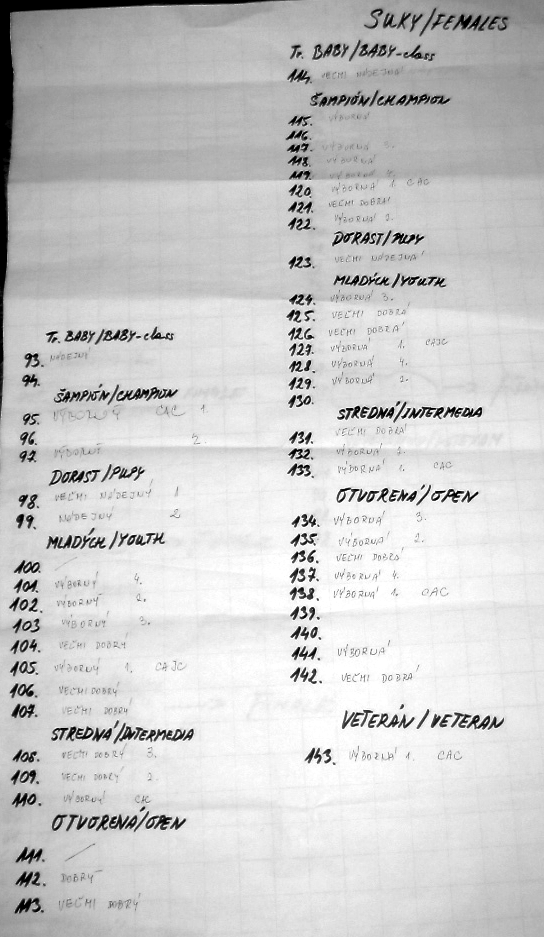 Tr. BABY/BABY-class
93. NÁDEJNÝ
94.
ŠAMPIÓN/CHAMPION
95. VÝBORNÝ CAC 1.
96. 2.
97. VÝBORNÝ
DORAST/PUPY
98. VEĽMI NÁDEJNÝ 1
99. NÁDEJNÝ 2
MLADÝCH/YOUTH
100. /
101. VÝBORNÝ 4.
102. VÝBORNÝ 2.
103 VÝBORNÝ 3.
104. VEĽMI DOBRÝ
105. VÝBORNÝ 1. CAJC
106. VEĽMI DOBRÝ
107. VEĽMI DOBRÝ
STREDNÁ/INTERMEDIA
108. VEĽMI DOBRÝ 3.
109. VEĽMI DOBRÝ 2.
110. VÝBORNÝ CAC
OTVORENÁ/OPEN
111. /
112. DOBRÝ
113. VEĽMI DOBRÝ
SUKY/FEMALES
Tr. BABY/BABY-class
114. VEĽMI NÁDEJNÁ
ŠAMPIÓN/CHAMPION
115. VÝBORNÁ
116.
117. VÝBORNÁ 3.
118. VÝBORNÁ
119. VÝBORNÁ
120. VÝBORNÁ 1. CAC
121. VEĽMI DOBRÁ
122. VÝBORNÁ 2.
DORAST/PUPY
123. VEĽMI NÁDEJNÁ
MLADÝCH/YOUTH
124. VÝBORNÁ 3.
125. VEĽMI DOBRÁ
126. VEĽMI DOBRÁ
127. VÝBORNÁ 1. CAJC
128. VÝBORNÁ 4.
129. VÝBORNÁ 2.
130.
STREDNÁ/INTERMEDIA
131. VEĽMI DOBRÁ
132. VÝBORNÁ 2.
133. VÝBORNÁ 1. CAC
OTVORENÁ/OPEN
134. VÝBORNÁ 3.
135. VÝBORNÁ 2.
136. VEĽMI DOBRÁ
137. VÝBORNÁ 4.
138. VÝBORNÁ 1. CAC
139.
140.
141. VÝBORNÁ
142. VEĽMI DOBRÁ
VETERÁN/VETERAN
143. VÝBORNÁ 1. CAC